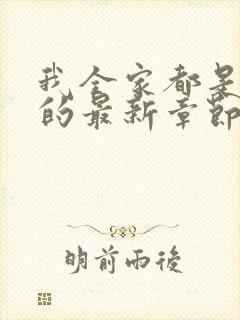 我全家都是
的最新章節
明前雨後